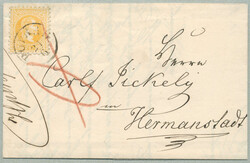 Herrn
Carl Jickely
in
Hermanstadt